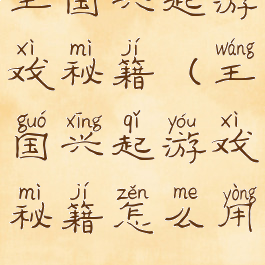 王国兴起游
xì mì jí wáng
戏秘籍（王
guó xīng qǐ yóu xì
国兴起游戏
mì jí zěn me yòng
秘籍怎么用